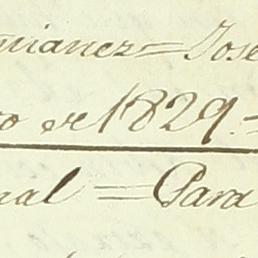 mianez = Jose
ro de 1829. =
nal = Para